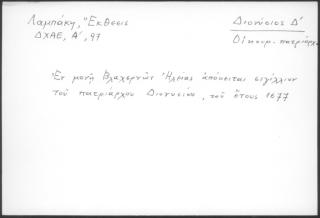 Λαμπάκη, "Έκθεσις
ΔΧΑΕ, Α', 97
Διονύσιος Δ'
Οἰκουμ. πατριάρχ
Ἐν μονῇ Βλαχερνῶν Ἠλείας ἀπόκειται σιγίλλιον
τοῦ πατριάρχου Διονυσίου, τοῦ ἔτους 1677